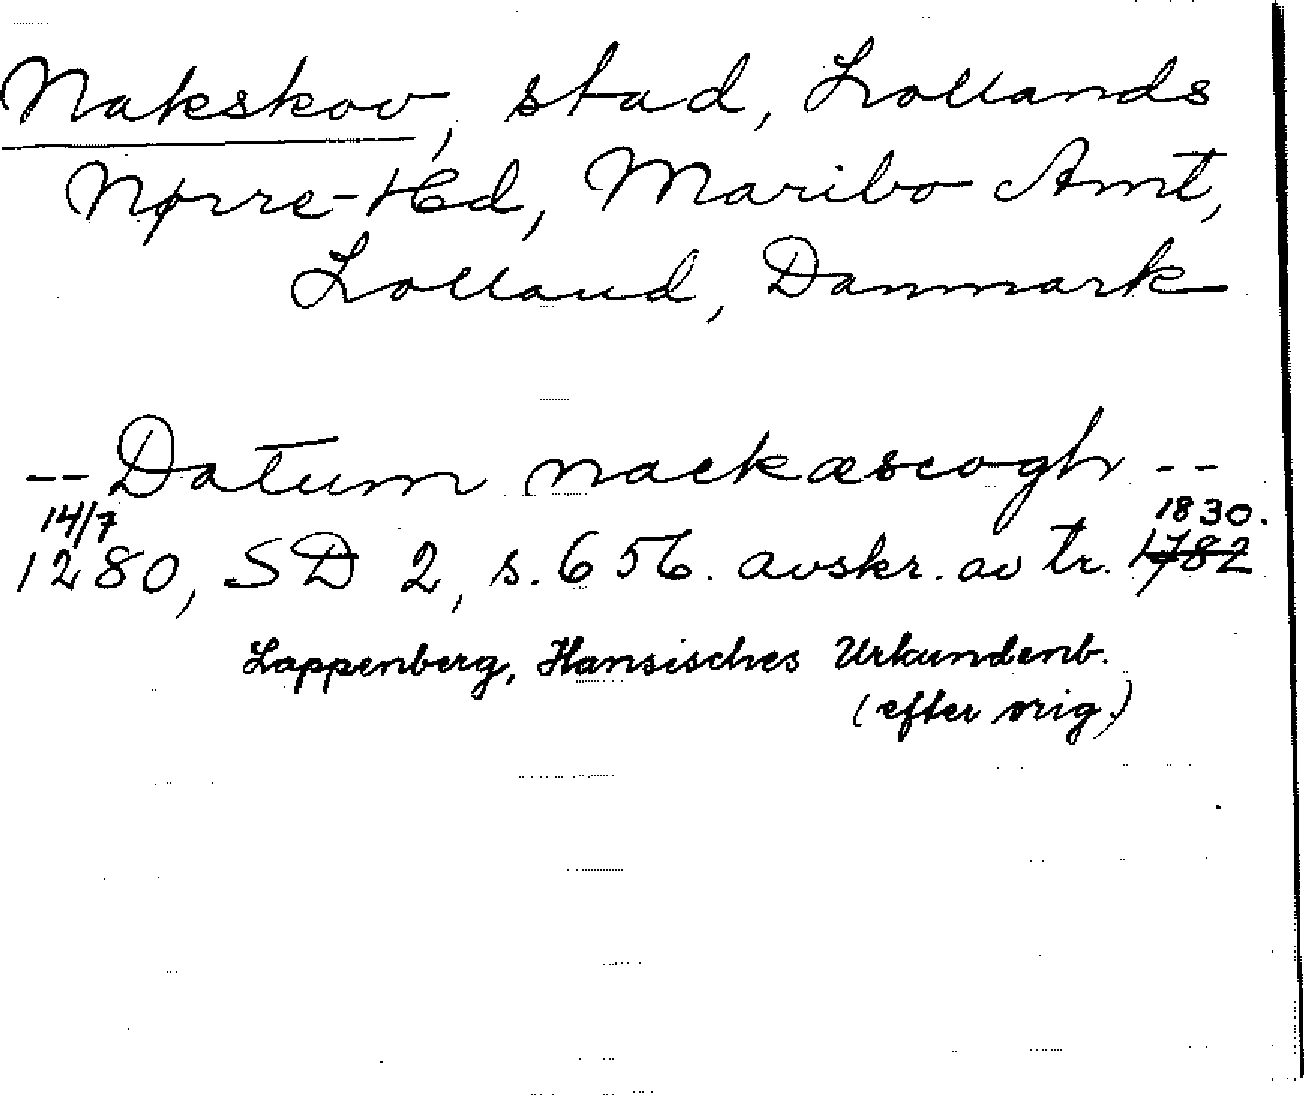 Nakskov, stad, Lollands
Nørre-Hd, Maribo Amt,
Lolland, Danmark
-- Datum nackæscogh --
14/7 1830.
1280, SD 2, s. 656. avskr. av tr. 1782
Lappenberg, Hansisches Urkundenb.
(efter orig.)